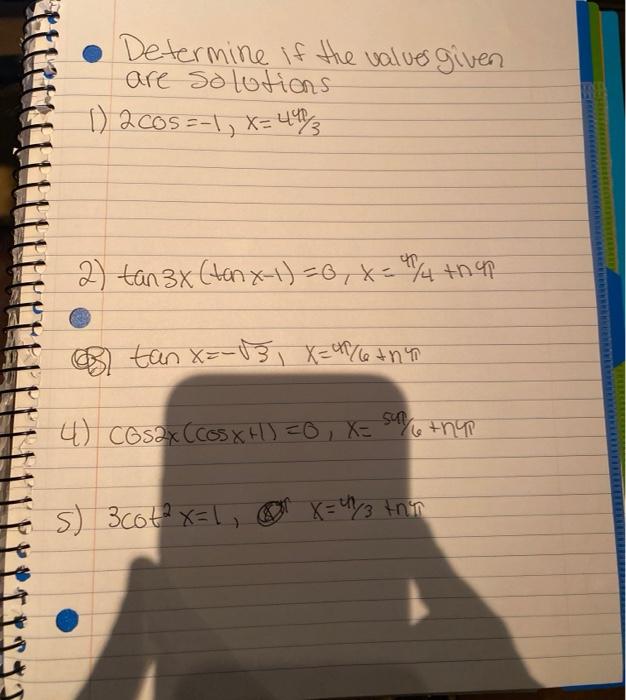 Determine if the values given
are solutions
1) 2cos=-1, x=4π/3
2) tan3x(tanx-1)=0, x=π/4 +nπ
3) tan x=-√3, x=π/6+nπ
4) cos2x(cosx+1)=0, x= 5π/6 +nπ
5) 3cot²x=1, x=π/3 +nπ